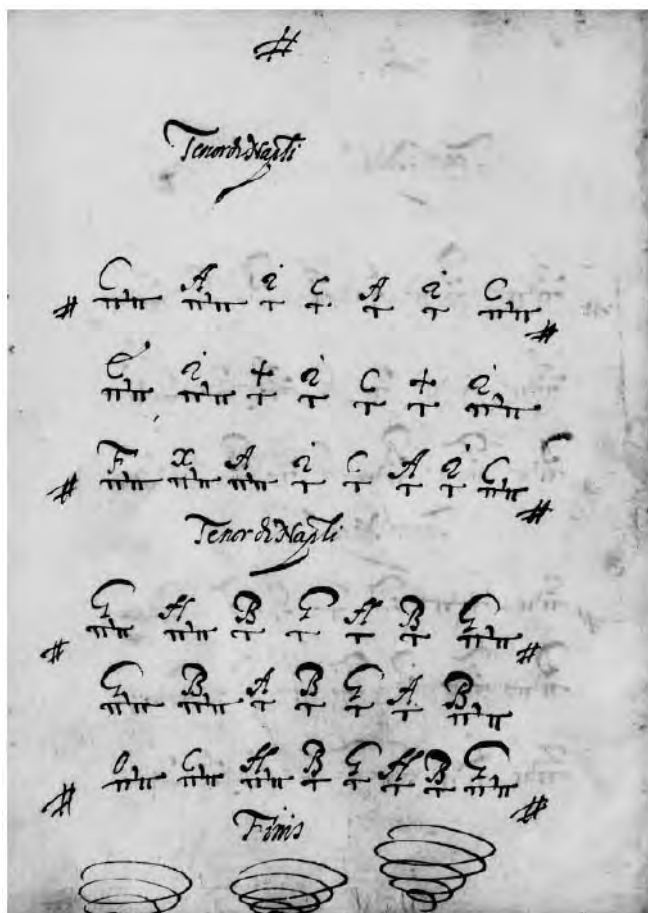 #
Tenor di Napli
# C A i C A i C #
C i + i C + i
# F x A i C A i C #
Tenor di Napli
# G H B G H B G #
G B A B G A B
# O C H B G H B G #
Finis